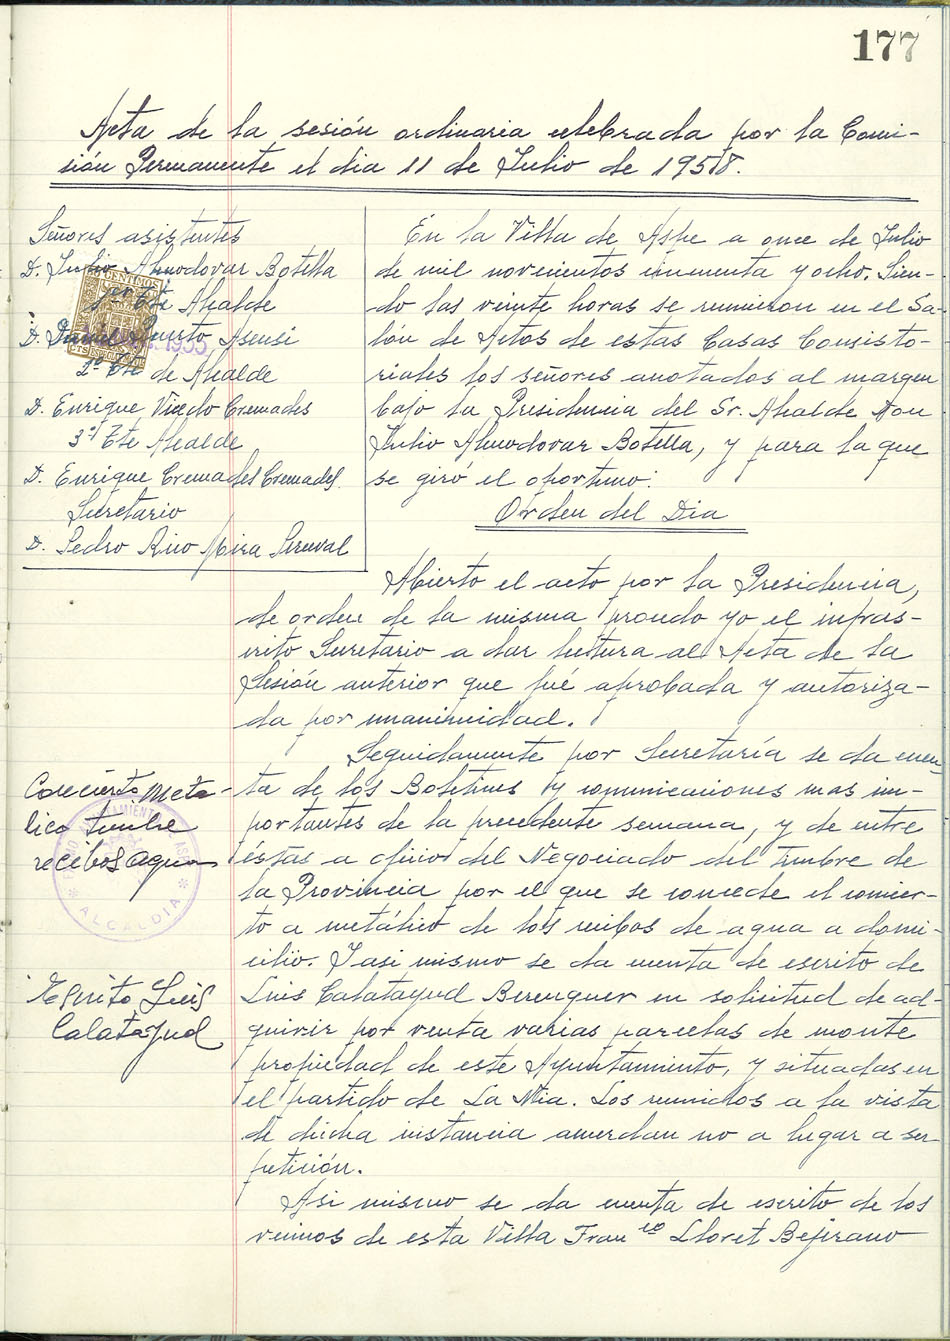 177
Acta de la sesión ordinaria celebrada por la Comi-
sión Permanente el dia 11 de Julio de 1958.
Señores asistentes
D. Julio Almodovar Botella
1er Tte Alcalde
D. Daniel Puerto Asensi
2º Tte de Alcalde
D. Enrique Vicedo Cremades
3º Tte Alcalde
D. Enrique Cremades Cremades.
Secretario
D. Pedro Rico Mira Perceval
En la Villa de Aspe a once de Julio
de mil novecientos cincuenta y ocho. Sien-
do las veinte horas se reunieron en el Sa-
lón de Actos de estas Casas Consisto-
riales los señores anotados al margen
bajo la Presidencia del Sr. Alcalde Don
Julio Almodovar Botella, y para la que
se giró el oportuno:
Orden del Dia
Abierto el acto por la Presidencia,
de orden de la misma procedo yo el infras-
crito Secretario a dar lectura al Acta de la
Sesión anterior que fué aprobada y autoriza-
da por unanimidad.
Seguidamente por Secretaría se da cuen-
ta de los Boletines y comunicaciones mas im-
portantes de la precedente semana, y de entre
éstas a oficio del Negociado del Timbre de
la Provincia por el que se concede el concier-
to a metálico de los recibos de agua a domi-
cilio. Y asi mismo se da cuenta de escrito de
Luis Calatayud Berenguer en solicitud de ad-
quirir por venta varias parcelas de monte
propiedad de este Ayuntamiento, y situadas en
el partido de La Nia. Los reunidos a la vista
de dicha instancia acuerdan no a lugar a ser
petición.
Asi mismo se da cuenta de escrito de los
vecinos de esta Villa Franco Lloret Bejerano
Concierto Metá-
lico timbre
recibos agua
ALCALDIA
Escrito Luis
Calatayud